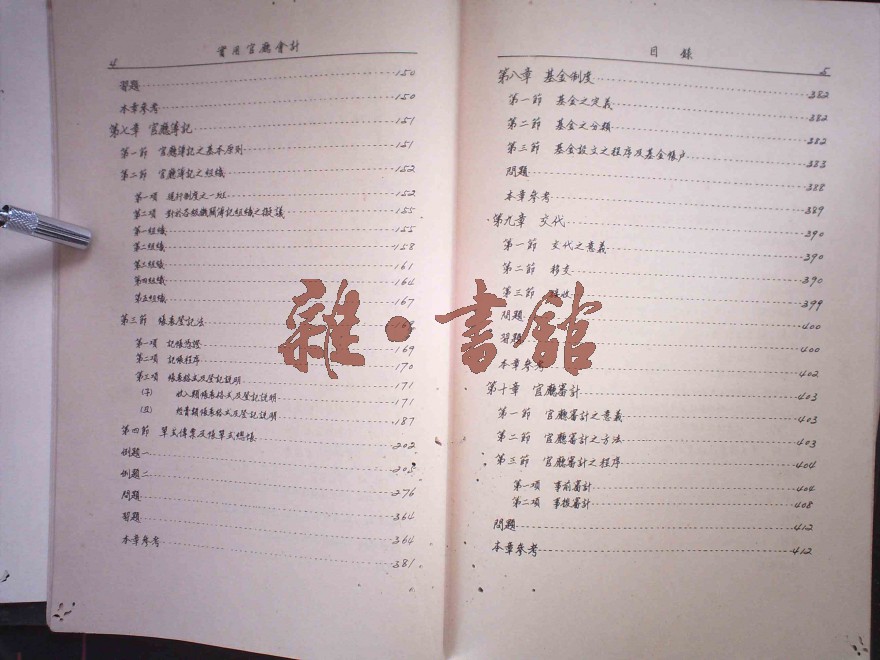 4 實用官廳會計
習題 150
本章參考 150
第七章 官廳簿記 151
第一節 官廳簿記之基本原則 151
第二節 官廳簿記之組織 152
第一項 現行制度之一斑 152
第二項 對於各級機關簿記組織之擬議 155
第一組織 155
第二組織 158
第三組織 161
第四組織 164
第五組織 167
第三節 帳表登記法
第一項 記帳憑證 169
第二項 記帳程序 170
第三項 帳表格式及登記說明 171
(子) 收入類帳表格式及登記說明 171
(丑) 經費類帳表格式及登記說明 187
第四節 單式傳票及帳單式總帳 202
例題一
例題二 276
問題 364
習題 364
本章參考 381
目錄 5
第八章 基金制度 382
第一節 基金之定義 382
第二節 基金之分類 382
第三節 基金設立之程序及基金帳户 383
問題 388
本章參考 389
第九章 交代 390
第一節 交代之意義 390
第二節 移交 390
第三節 399
問題 400
習題 400
本章參考 402
第十章 官廳審計 403
第一節 官廳審計之意義 403
第二節 官廳審計之方法 403
第三節 官廳審計之程序 404
第一項 事前審計 404
第二項 事後審計 408
問題 412
本章參考 412
雜·書館